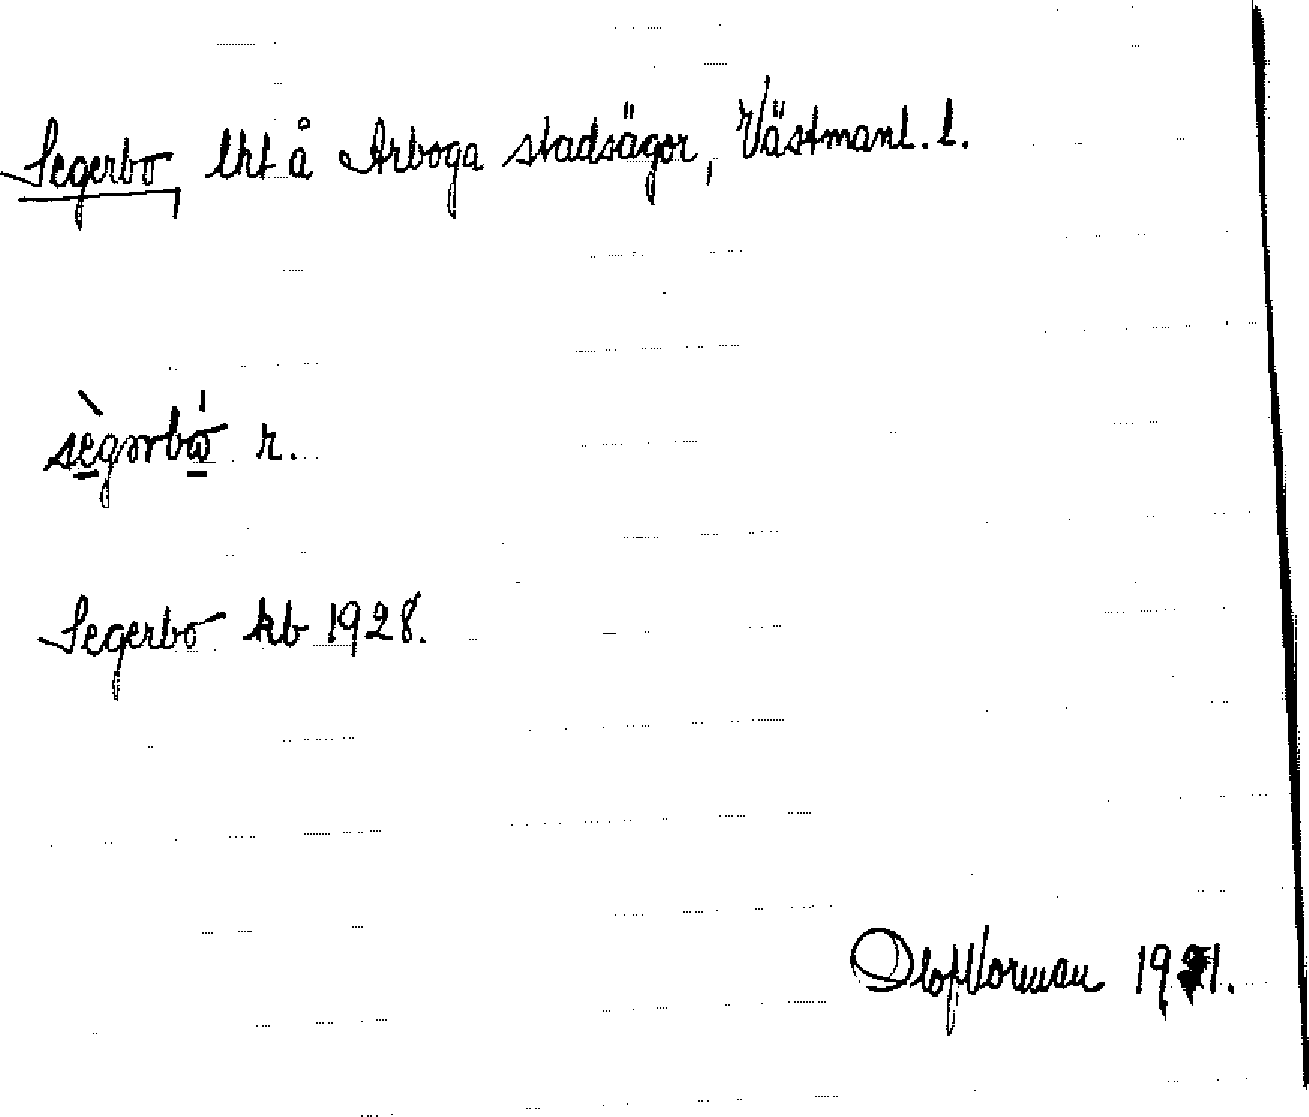 Segerbo, lht å Arboga stadsägor, Västmanl. l.
sègərbó r.
Segerbo kb 1928.
Olof Norman